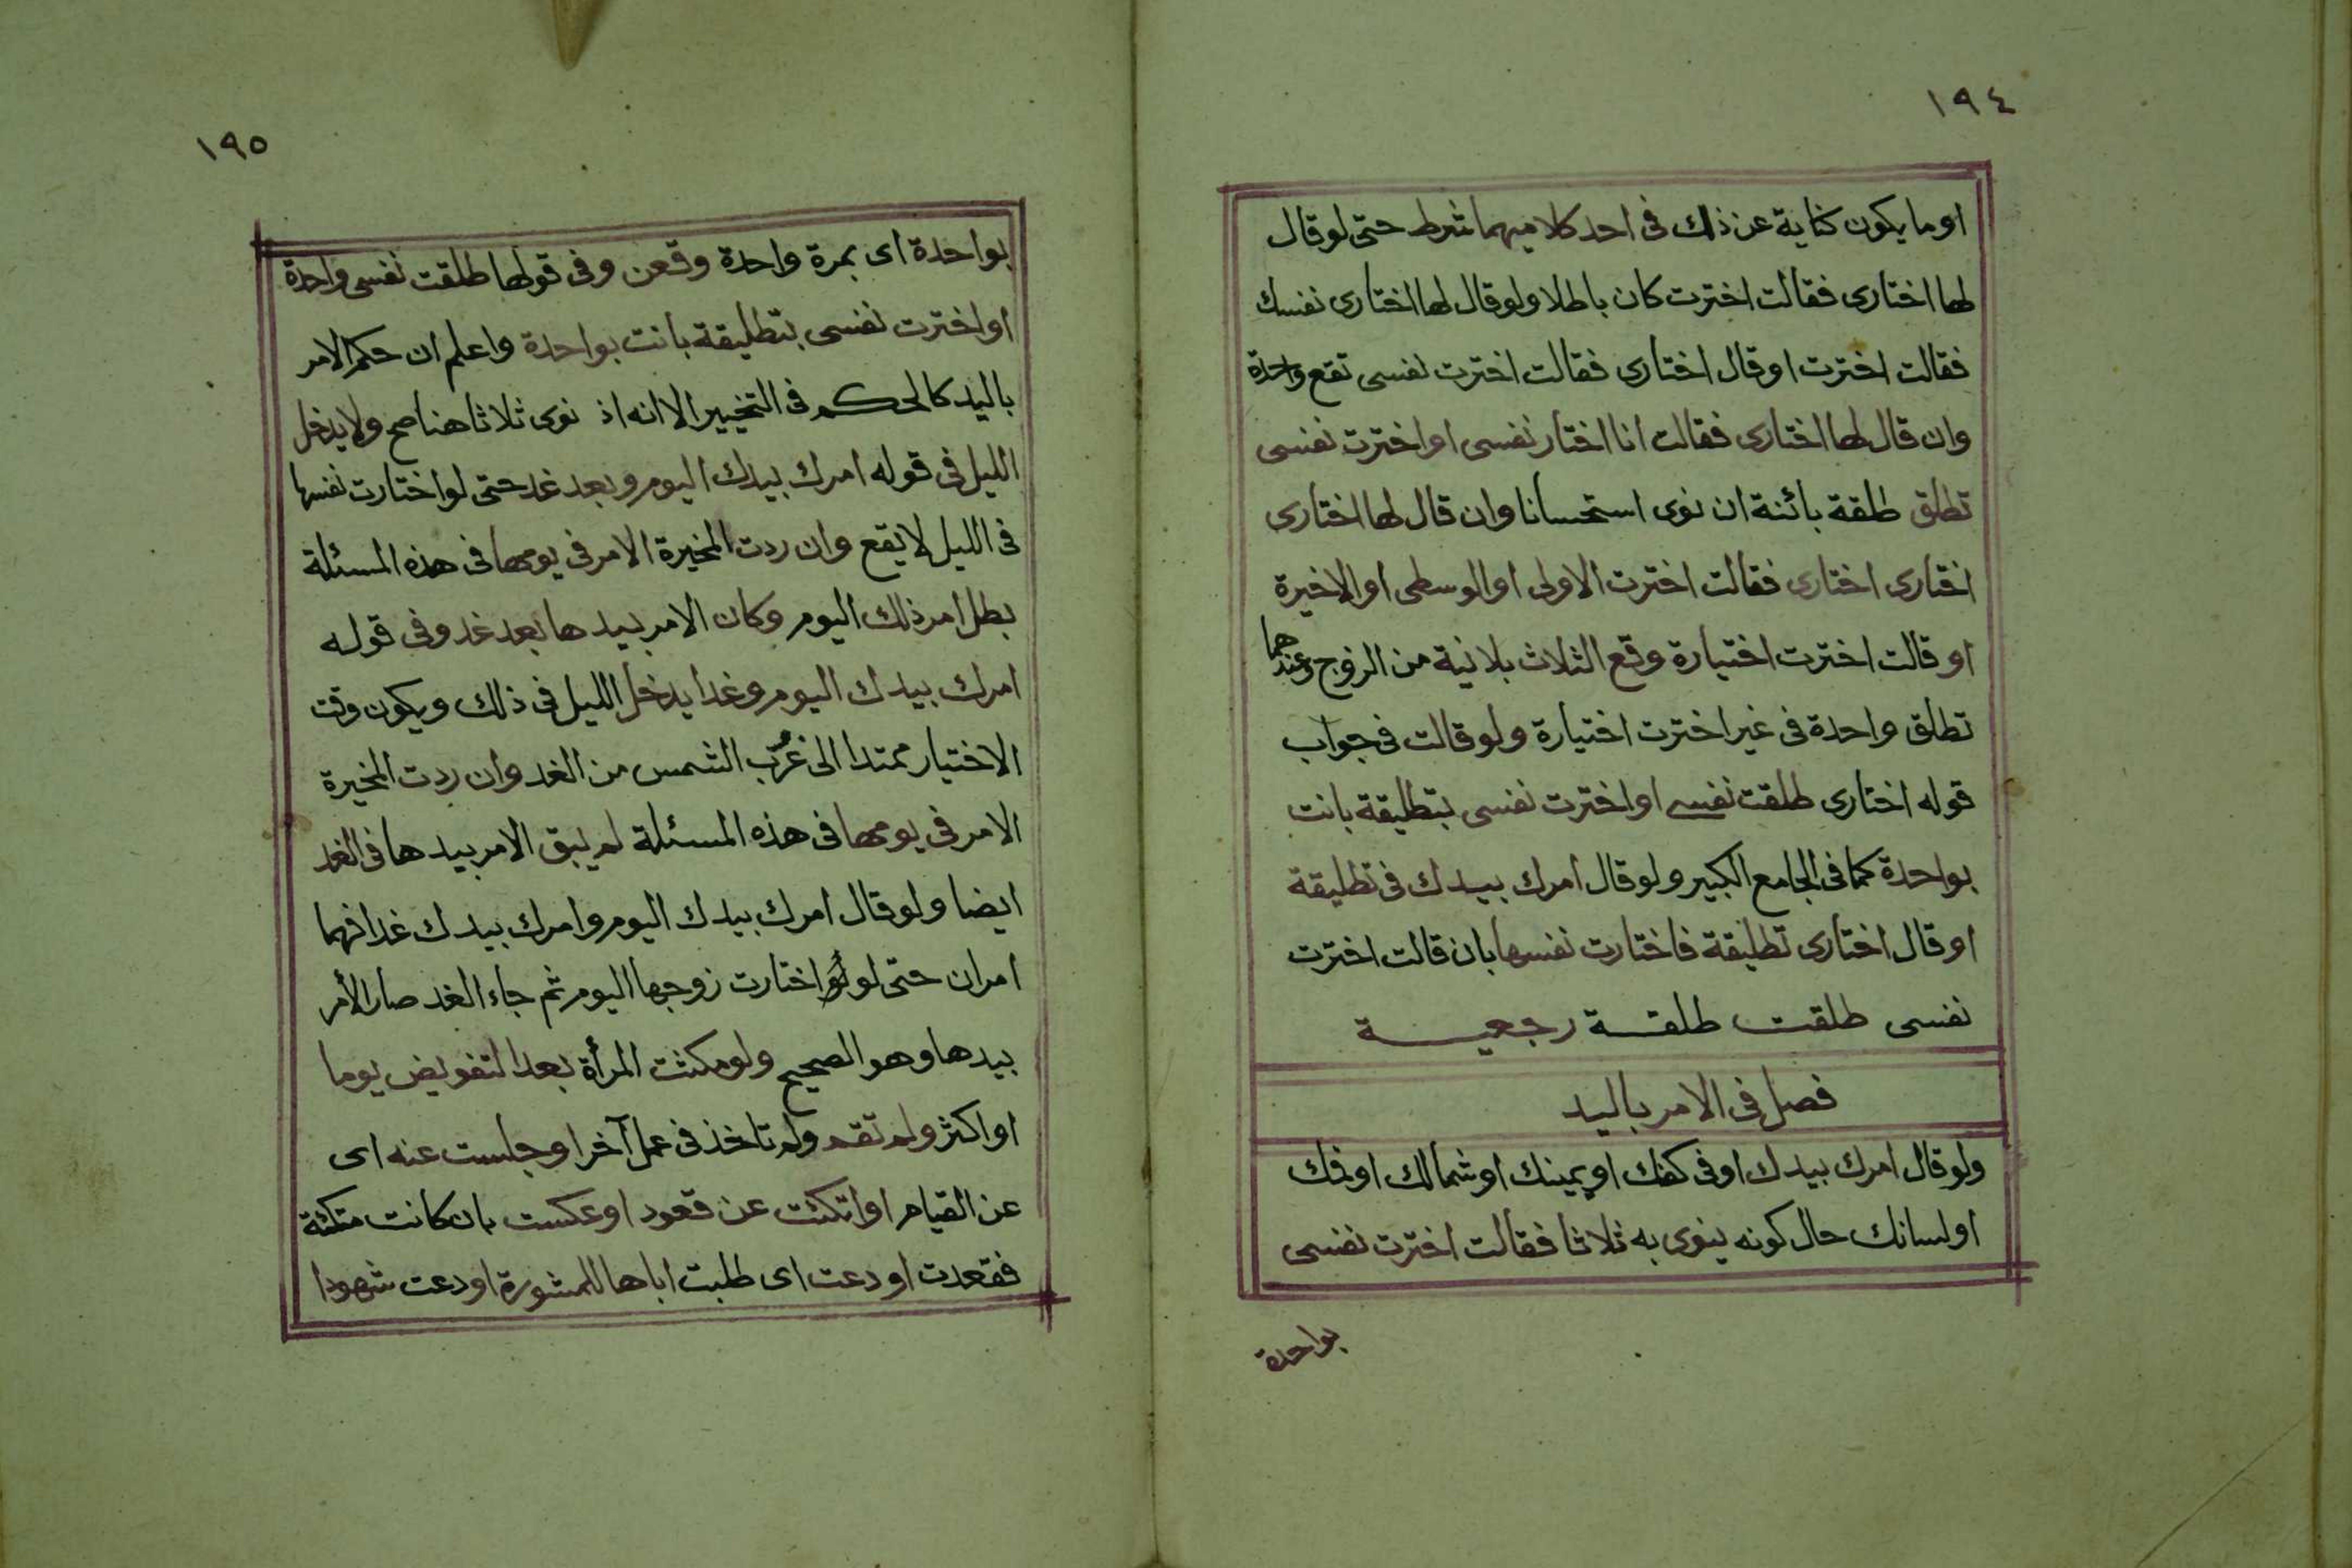 ١٩٤
او ما يكون كناية عن ذلك فى احد كلاميهما شرط حتى لو قال
لها اختارى فقالت اخترت كان باطلا ولو قال لها اختارى نفسك
فقالت اخترت او قال اختارى فقالت اخترت نفسى تقع واحدة
وان قال لها اختارى فقالت انا اختار نفسى او اخترت نفسى
تطلق طلقة بائنة ان نوى استحسانا وان قال لها اختارى
اختارى اختارى فقالت اخترت الاولى او الوسطى او الاخيرة
او قالت اخترت اختيارة وقع الثلاث بلا نية من الزوج وعندهما
تطلق واحدة فى غير اخترت اختيارة ولو قالت فى جواب
قوله اختارى طلقت نفسى او اخترت نفسى بتطليقة بانت
بواحدة كما فى الجامع الكبير ولو قال امرك بيدك فى تطليقة
او قال اختارى تطليقة فاختارت نفسها بان قالت اخترت
نفسى طلقت طلقة رجعية
فصل فى الامر باليد
ولو قال امرك بيدك او فى كفك او يمينك او شمالك او فمك
او لسانك حال كونه ينوى به ثلاثا فقالت اخترت نفسى
بواحدة
١٩٥
بواحدة اى بمرة واحدة وقعن وفى قولها طلقت نفسى واحدة
او اخترت نفسى بتطليقة بانت بواحدة واعلم ان حكم الامر
باليد كالحكم فى التخيير الا انه اذ نوى ثلاثا هنا صح ولا يدخل
الليل فى قوله امرك بيدك اليوم وبعد غد حتى لو اختارت نفسها
فى الليل لا يقع وان ردت المخيرة الامر فى يومها فى هذه المسئلة
بطل امر ذلك اليوم وكان الامر بيدها بعد غد وفى قوله
امرك بيدك اليوم وغدا يدخل الليل فى ذلك ويكون وقت
الاختيار ممتدا الى غرب الشمس من الغد وان ردت المخيرة
الامر فى يومها فى هذه المسئلة لم يبق الامر بيدها فى الغد
ايضا ولو قال امرك بيدك اليوم وامرك بيدك غدا فهما
امران حتى لو لو اختارت زوجها اليوم ثم جاء الغد صار الأمر
بيدها وهو الصحيح ولو مكثت المرأة بعد التفويض يوما
او اكثر ولم تقم ولم تاخذ فى عمل آخر او جلست عنه اى
عن القيام او اتكئت عن قعود او عكست بان كانت متكئة
فقعدت او دعت اى طلبت اباها للمشورة او دعت شهودا